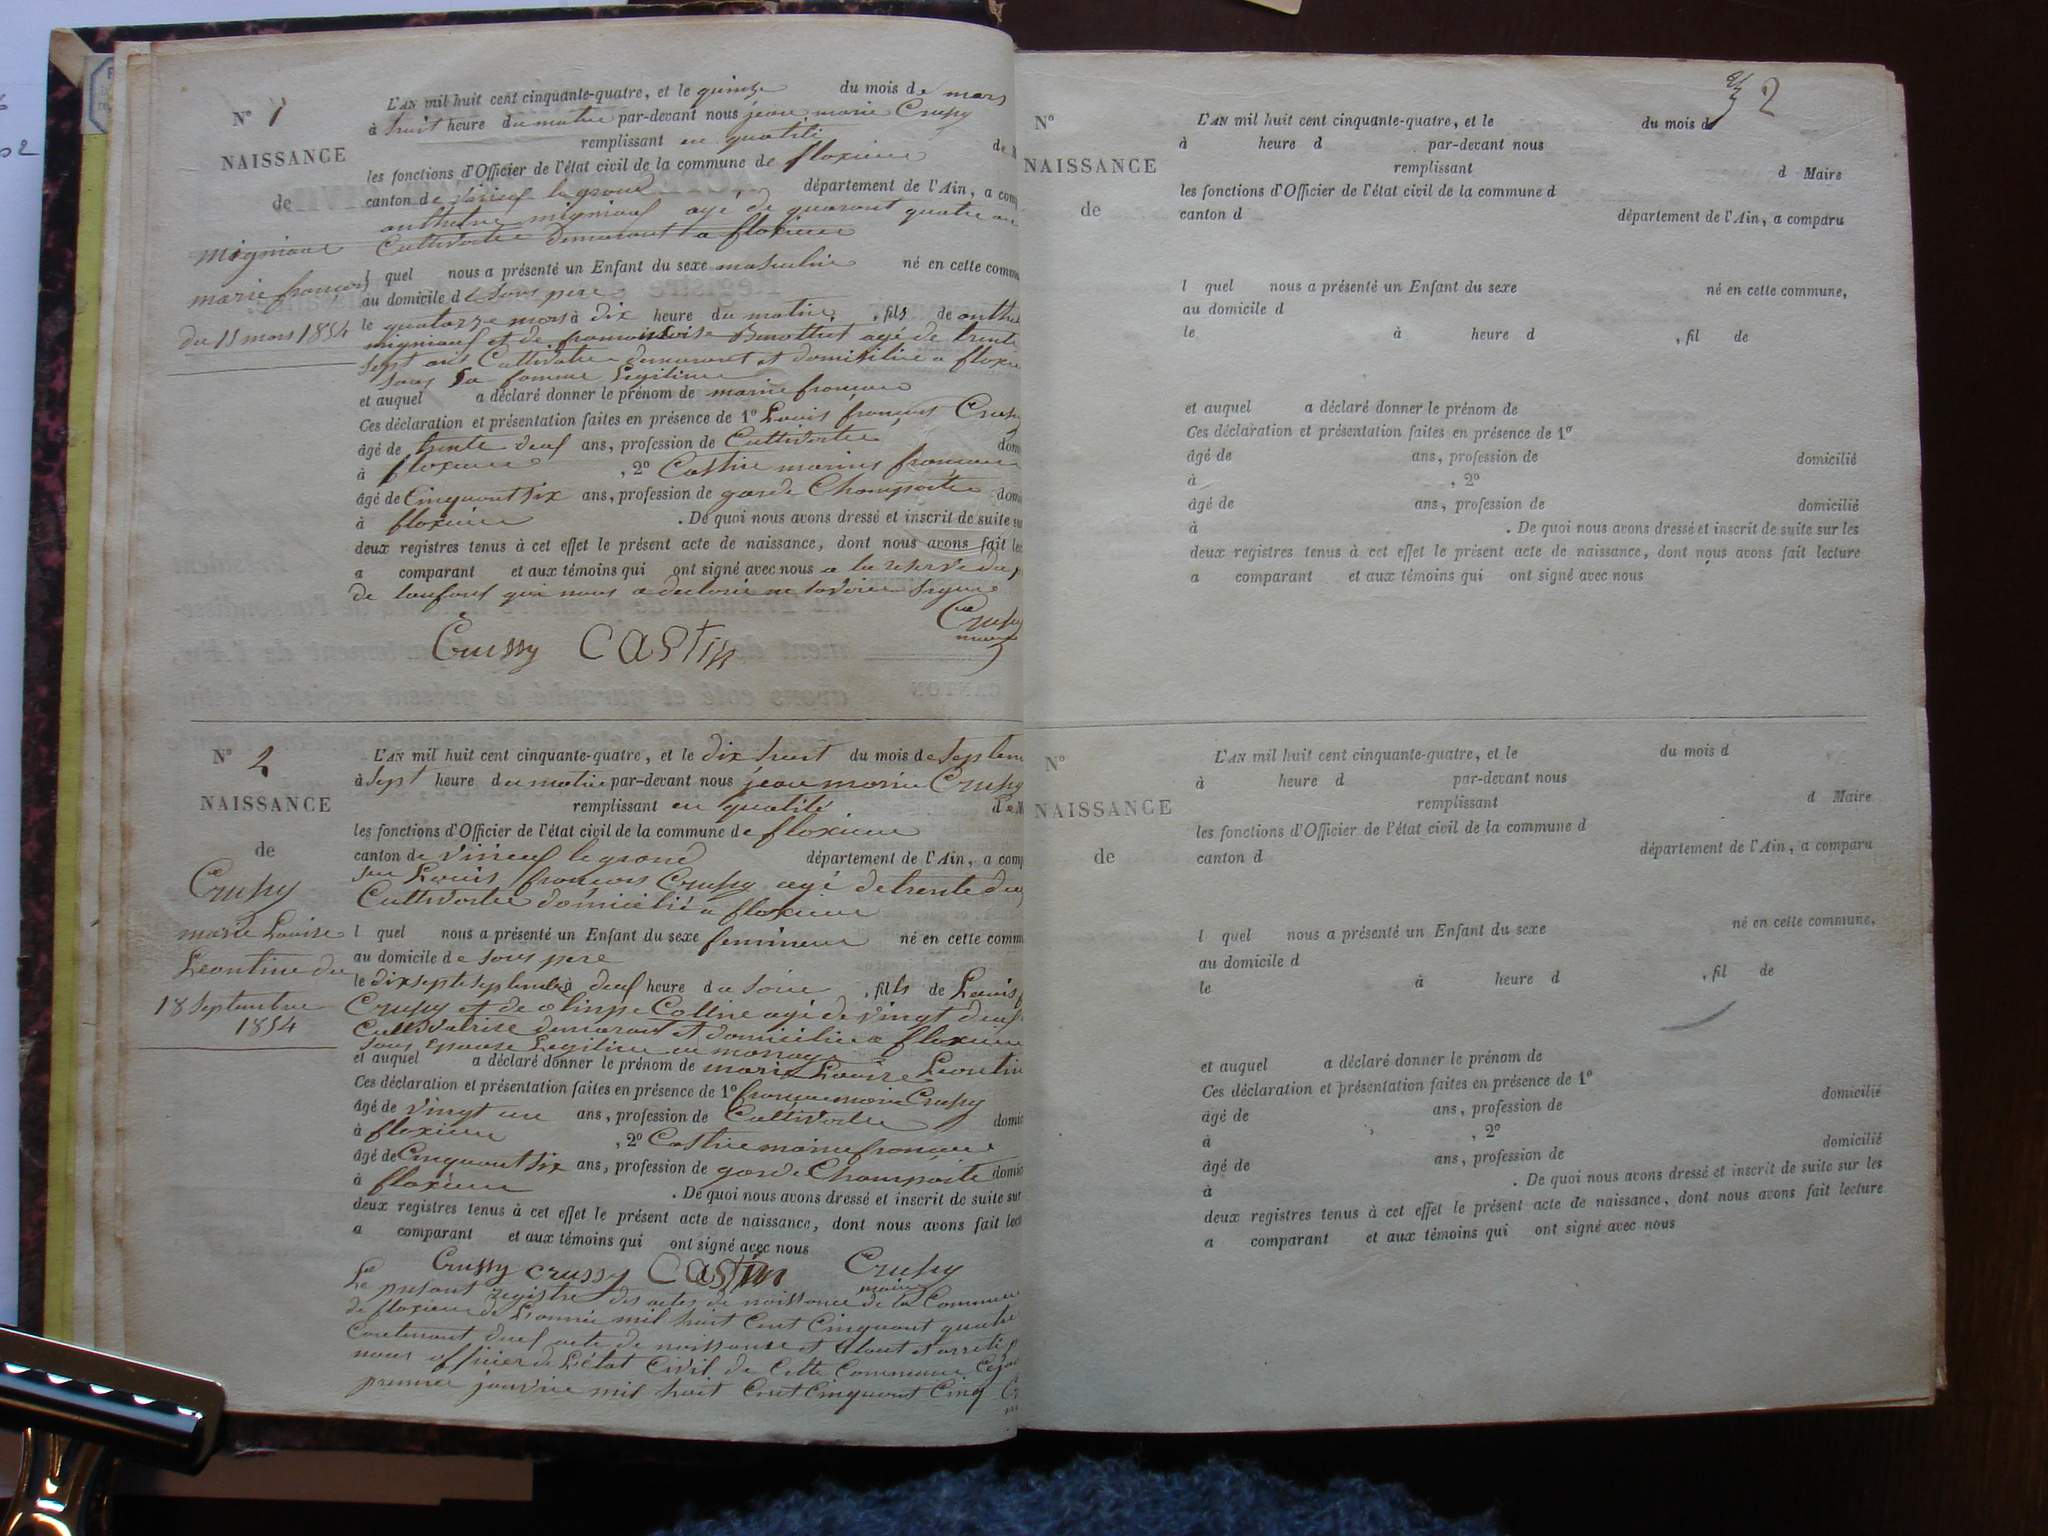 N° 1
NAISSANCE
de
migniaud
marie françois
du 15 mars 1854
L'AN mil huit cent cinquante-quatre, et le quinze du mois de mars
à huit heure du matin par-devant nous jean marie Crussy
remplissant en qualité de
les fonctions d'Officier de l'état civil de la commune de floxieu
canton de virieu le grand département de l'Ain, a comp
migniauf agé de quarant quatre an
Cultivateur demurant a floxieu
l quel nous a présenté un Enfant du sexe masculin né en cette comm
au domicile de sons pere
le quatorze mars à dix heure du matin, fils de
migniauf et de agé de trente
sept ans demurant et domicilie a floxieu
sous sa famme Legitime
et auquel a déclaré donner le prénom de marie francois
Ces déclaration et présentation faites en présence de 1° Louis françois Crussy
âgé de trente deuf ans, profession de Cultivateur dom
à floxieu , 2° Castin marius francois
âgé de Cinquant six ans, profession de garde Champaitre dom
à floxieu . De quoi nous avons dressé et inscrit de suite su
deux registres tenus à cet effet le présent acte de naissance, dont nous avons fait lec
a comparant et aux témoins qui ont signé avec nous a la reserve du
de lanfans que nous a declaré ne savoir signé
Crussy CASTin Crussy
maire
N° 2
NAISSANCE
de
Crussy
marie Louise
Leontine du
18 Septembre
1854
L'AN mil huit cent cinquante-quatre, et le dix huit du mois de Septem
à sept heure du matin par-devant nous jean marie Crussy
remplissant en qualité de M
les fonctions d'Officier de l'état civil de la commune de floxieu
canton de virieuf le grand département de l'Ain, a comp
Louis francois Crussy agé de trente deuf
Cultivateur domicilié a floxieu
l quel nous a présenté un Enfant du sexe femineu né en cette comm
au domicile de sons pere
le dix septe septembre à deuf heure du soir , fills de Louis f
Crussy et de olimpe Colline agé de vingt deuf
Cultivatrise demurant et domicilie a floxieu
sous Epouse Legitime en mariage
et auquel a déclaré donner le prénom de marie Louise Leontin
Ces déclaration et présentation faites en présence de 1° francois marie Crussy
âgé de vingt un ans, profession de Cultivateur domic
à floxieu , 2° Castin marie francois
âgé de Cinquant six ans, profession de garde Champaitre domic
à floxieu . De quoi nous avons dressé et inscrit de suite sur
deux registres tenus à cet effet le présent acte de naissance, dont nous avons fait lect
a comparant et aux témoins qui ont signé avec nous
Crussy crussy CASTin Crussy
maire
Le present registre des actes de naissance de la Commune
de floxieu de L'année mil huit Cent Cinquant quatre
Contenant deuf acte de naissance et arretté
nous officier de L'état Civil de Cette Commune
premier janvier mil huit Cent Cinquant Cinq
2
N°
NAISSANCE
de
L'AN mil huit cent cinquante-quatre, et le du mois d
à heure d par-devant nous
remplissant d Maire
les fonctions d'Officier de l'état civil de la commune d
canton d département de l'Ain, a comparu
l quel nous a présenté un Enfant du sexe né en cette commune,
au domicile d
le à heure d , fil de
et auquel a déclaré donner le prénom de
Ces déclaration et présentation faites en présence de 1°
âgé de ans, profession de domicilié
à , 2°
âgé de ans, profession de domicilié
à . De quoi nous avons dressé et inscrit de suite sur les
deux registres tenus à cet effet le présent acte de naissance, dont nous avons fait lecture
a comparant et aux témoins qui ont signé avec nous
N°
NAISSANCE
de
L'AN mil huit cent cinquante-quatre, et le du mois d
à heure d par-devant nous
remplissant d Maire
les fonctions d'Officier de l'état civil de la commune d
canton d département de l'Ain, a comparu
l quel nous a présenté un Enfant du sexe né en cette commune,
au domicile d
le à heure d , fil de
et auquel a déclaré donner le prénom de
Ces déclaration et présentation faites en présence de 1°
âgé de ans, profession de domicilié
à , 2°
âgé de ans, profession de domicilié
à . De quoi nous avons dressé et inscrit de suite sur les
deux registres tenus à cet effet le présent acte de naissance, dont nous avons fait lecture
a comparant et aux témoins qui ont signé avec nous